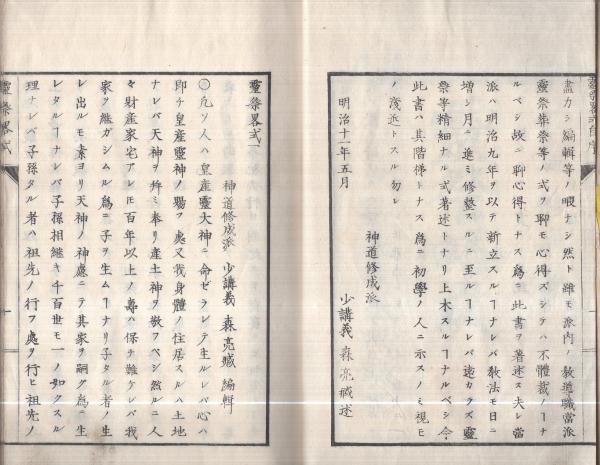 靈祭畧式自序
盡力シ編輯等ノ暇ナシ然ト雖モ派内ノ教導職當派
靈祭葬祭等ノ式ヲ聊モ心得ズシテハ不體裁ノヿナ
ルベシ故ニ聊心得トナス爲ニ此書ヲ著述ス夫レ當
派ハ明治九年ヲ以テ新立スルヿナレバ教法モ日ニ
増シ月ニ進ミ修整スルニ至ルヿナレバ速カラズ靈
祭等精細ナル式著述トナリ上木スルヿナルベシ今
此書ハ其階梯トナス爲ニ初學ノ人ニ示スノミ視モ
ノ淺近トスル勿レ
明治十一年五月
神道修成派
少講義 森亮㓕述
靈祭畧式一
神道修成派 少講義 森亮㓕 編輯
〇凡ソ人ハ皇産靈大神ニ命ゼラレテ生ルレバ心ハ
即チ皇産靈神ノ賜フ處又我身體ノ住居スルハ土地
ナレバ天神ヲ拜ミ奉リ産土神ヲ敬フベシ然ルニ人
々財産家宅アレ𪜈百年以上ノ壽ハ保チ難ケレバ我
家ヲ継ガシムル爲ニ子ヲ生ムヿナリ子タル者ノ生
レ出ルモ素ヨリ天神ノ神慮ニテ其家ヲ嗣グ爲ニ生
レタルヿナレバ子孫相継キ千百世モ一ノ如クスル
理ナレバ子孫タル者ハ祖先ノ行フ處ヲ行ヒ祖先ノ
靈祭畧式
一